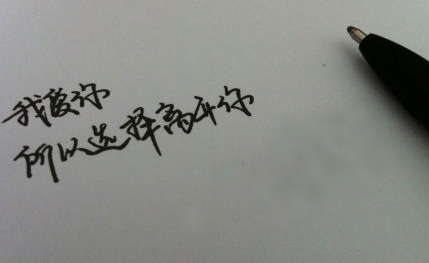 我爱你
所以选择离开你